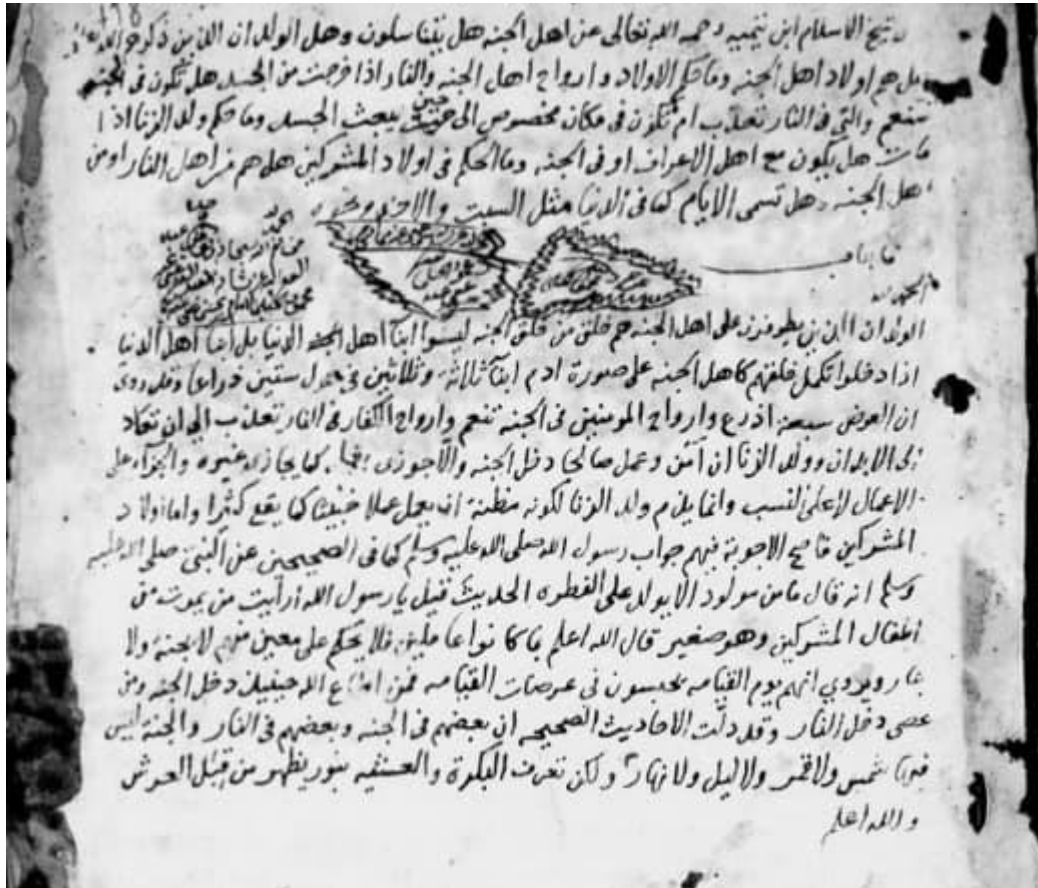 شيخ الاسلام ابن تيميه رحمه الله تعالى عن اهل الجنه هل يتناسلون وهل الولدان الذين ذكرهم الله تعالى
هل هم اولاد اهل الجنه وما حكم الاولاد وارواح اهل الجنه والنار اذا خرجت من الجسد هل تكون فى الجنه
تنعم والتى فى النار تعذب ام تكون فى مكان مخصوص الى حيث يبعث الجسد وما حكم ولد الزنا اذا
مات هل يكون مع اهل الاعراف او فى الجنه وما الحكم فى اولاد المشركين هل هم من اهل النار او من
اهل الجنه وهل تسمى الايام كما فى الدنيا مثل السبت والاحد
فاجاب
الحمد لله
الولدان الذين يطوفون على اهل الجنه هم خلق من خلق الجنه ليسوا ابنا اهل الدنيا بل ابنا اهل الدنيا
اذا دخلوا تكمل خلقهم كاهل الجنه على صورة ادم ابنآ ثلاثة وثلاثين فى طول ستين ذراعا وقد روى
ان العرض سبعة اذرع وارواح المومنين فى الجنة تنعم وارواح الكفار فى النار تعذب الى ان تعاد
الى الابدان وولد الزنا ان آمن وعمل صالحا دخل الجنه والا جوزى بعمله كما يجازى غيره والجزآء على
الاعمال لا على النسب وانما يذم ولد الزنا لكونه مظنة ان يعمل عملا خبيثا كما يقع كثيرا واما اولاد
المشركين فاصح الاجوبة فيهم جواب رسول الله صلى الله عليه وسلم كما فى الصحيحين عن النبى صلى الله عليه
وسلم انه قال ما من مولود الا يولد على الفطره الحديث قيل يا رسول الله أرأيت من يموت من
اطفال المشركين وهو صغير قال الله اعلم بما كانوا عاملين فلا يحكم على معين منهم لا بجنة ولا
بنار ويروي انهم يوم القيامه يمتحنون فى عرصات القيامه فمن اطاع الله حينيذ دخل الجنه ومن
عصى دخل النار وقد دلت الاحاديث الصحيحه ان بعضهم فى الجنه وبعضهم فى النار والجنة ليس
فيها شمس ولا قمر ولا ليل ولا نهار ولكن تعرف البكرة والعشيه بنور يظهر من قبل العرش
والله اعلم